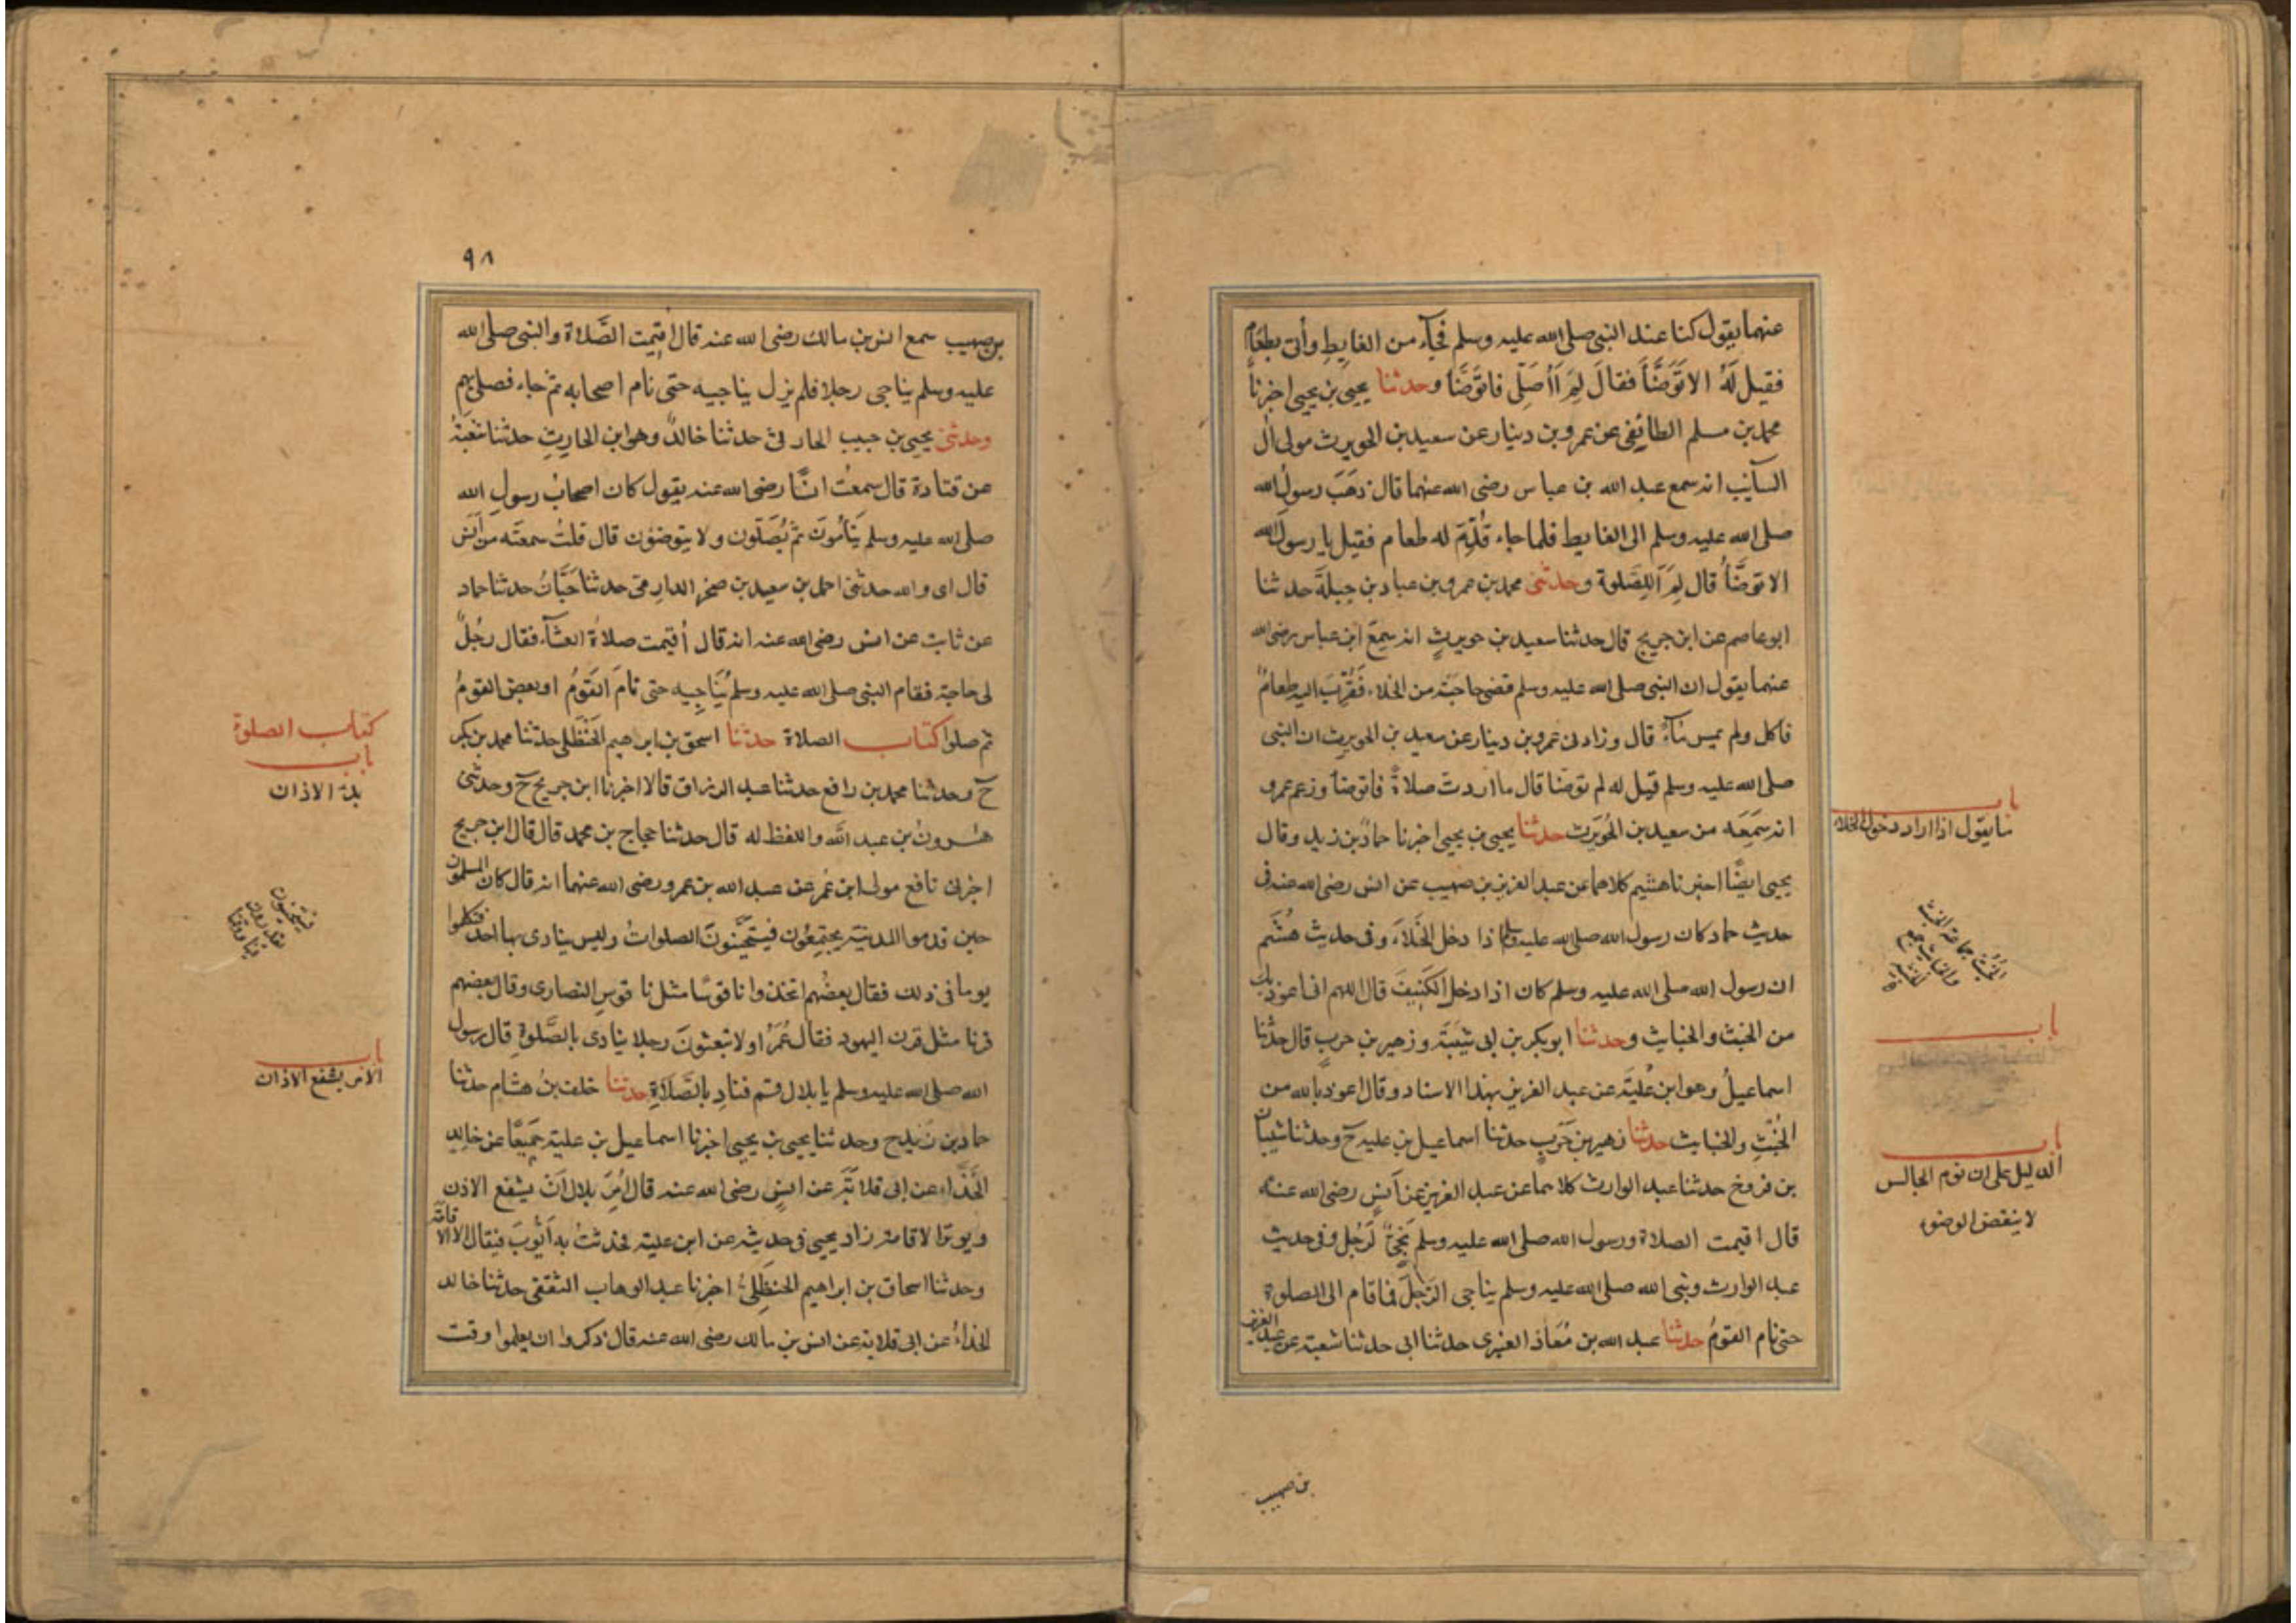 عنهما يقول كنا عند النبى صلى الله عليه وسلم فجآء من الغايط وأتى بطعام
فقيل لَهُ الا تَوَضَّأَ فقالَ لِمَ أَأُصَلّى فاتوَضَّأ وحدثنا يحيى بن يحيى اخبرنا
محمد بن مسلم الطائفى عن عمرو بن دينار عن سعيد بن الحويرث مولى آل
السآئب انه سمع عبد الله بن عباس رضى الله عنهما قال ذهَبَ رسول الله
صلى الله عليه وسلم الى الغايط فلما جاء قُدِّمَ له طعام فقيل يا رسول الله
الا توضَّأُ قال لِمَ أَلِلصَّلوة وحدثنى محمد بن عمرو بن عباد بن جبلَةَ حدثنا
ابو عاصم عن ابن جريج قال حدثنا سعيد بن حويرثٍ انه سمعَ ابن عباس رضى الله
عنهما يقول ان النبى صلى الله عليه وسلم قضى حاجَتَه من الخلاء فَقُرِّبَ اليه طعامٌ
فاكل ولم يمس مآءً قال وزادنى عمرو بن دينار عن سعيد بن الحويرث ان النبى
صلى الله عليه وسلم قيل له لم توضا قال ما اردت صلاةً فاتوضا وزعم عمرو
انه سَمِعَه من سعيد بن الحُوَيرث حدثنا يحيى بن يحيى اخبرنا حمادُ بن زيد وقال
يحيى ايضًا اخبرنا هشيم كلاهما عن عبد العزيز بن صهيب عن انس رضى الله عنه فى
حديث حماد كان رسول الله صلى الله عليه وسلم اذا دخل الخَلَاءَ وفى حديث هُشَيم
ان رسول الله صلى الله عليه وسلم كان اذا دخل الكَنِيفَ قال اللهم انى اعوذ بك
من الخبث والخبايث وحدثنا ابو بكر بن ابى شَيبَةَ وزهير بن حربٍ قال حدثنا
اسماعيلُ وهو ابن عُليَّةَ عن عبد العزيز بهذا الاسناد وقال اعوذ بالله من
الخُبُثِ والخبايث حدثنا زهير بن حَربٍ حدثنا اسماعيل بن عليه ح وحدثنا شيبان
بن فروخ حدثنا عبد الوارث كلاهما عن عبد العزيز عن أنسٍ رضى الله عنه
قال اقيمت الصلاة ورسول الله صلى الله عليه وسلم نَجىٌّ لرَجُل وفى حديث
عبد الوارث ونبى الله صلى الله عليه وسلم يناجى الرَجلَ فما قام الى الصلوة
حتى نام القومُ حدثنا عبد الله بن مُعَاذ العنبرى حدثنا ابى حدثنا شعبة عن عبد العزيز
بن صهيب
باب
ما يقول اذا اراد دخول الخلاء
باب
باب
الدليل على ان نوم الجالس
لا ينقض الوضوء
٩٨
بن صهيب سمع انس بن مالك رضى الله عنه قال اقيمت الصَّلاة والنبى صلى الله
عليه وسلم يناجى رجلا فلم يزل يناجيه حتى نام اصحابه ثم جاء فصلى بهم
وحدثنى يحيى بن حبيب الحارثى حدثنا خالدٌ وهو ابن الحارِثِ حدثنا شعبَةُ
عن قتادة قال سمعتُ انسًا رضى الله عنه يقول كان اصحابُ رسولِ الله
صلى الله عليه وسلم يَنَامُونَ ثم يُصَلّون ولا يتوضئون قال قلتُ سمعتَه من أنس
قال اى والله حدثنى احمد بن سعيد بن صخر الدارمى حدثنا حَبَّانُ حدثنا حماد
عن ثابت عن انس رضى الله عنه انه قال أقيمت صلاةُ العشآء فقال رجُلٌ
لى حاجة فقام النبى صلى الله عليه وسلم يُنَاجِيه حتى نامَ القَومُ او بعض القومُ
ثم صلوا كتاب الصلاة حدثنا اسحق بن ابرهيم الحَنظلى حدثنا محمد بن بكر
ح وحدثنا محمد بن رافع حدثنا عبد الرزاق قالا اخبرنا ابن جريج ح وحدثنى
هٰرونُ بن عبد الله واللفظ له قال حدثنا حجاج بن محمد قال قال ابن جريج
اخبرنى نافع مولى ابن عُمر عن عبد الله بن عمرو رضى الله عنهما انه قال كان المسلمون
حين قدموا المدينة يجتمِعُون فيتحَيَّنونَ الصلواتُ وليس ينادى بها احد فتكلموا
يوما فى ذلك فقال بعضُهم اتخذوا ناقوسًا مثل ناقوسِ النصارى وقال بعضهم
قرنا مثل قرن اليهود فقال عُمَرُ اولا تبعثونَ رجلا ينادى بالصَّلوةِ قال رسول
الله صلى الله عليه وسلم يا بلال قم فنادِ بالصَّلَاةِ حدثنا خلف بنُ هشام حدثنا
حماد بن زيد ح وحدثنا يحيى بن يحيى اخبرنا اسماعيل بن علية جَميعًا عن خالد
الحَذَّاء عن ابى قلابَةَ عن انسٍ رضى الله عنه قال أُمِرَ بلال أن يشفع الاذن
ويوتر الاقامة زاد يحيى فى حديثه عن ابن علية فحدثتُ به أيُّوبَ فقال الا الاقامة
وحدثنا اسحاق بن ابراهيم الحنظَلىُّ اخبرنا عبد الوهاب الثقفى حدثنا خالد
الحذاءُ عن ابى قلابة عن انس بن مالك رضى الله عنه قال ذكروا ان يعلموا وقت
كتاب الصلوة
باب
بدء الاذان
فيتحينون
يقدرون
باب
الامر بشفع الاذان